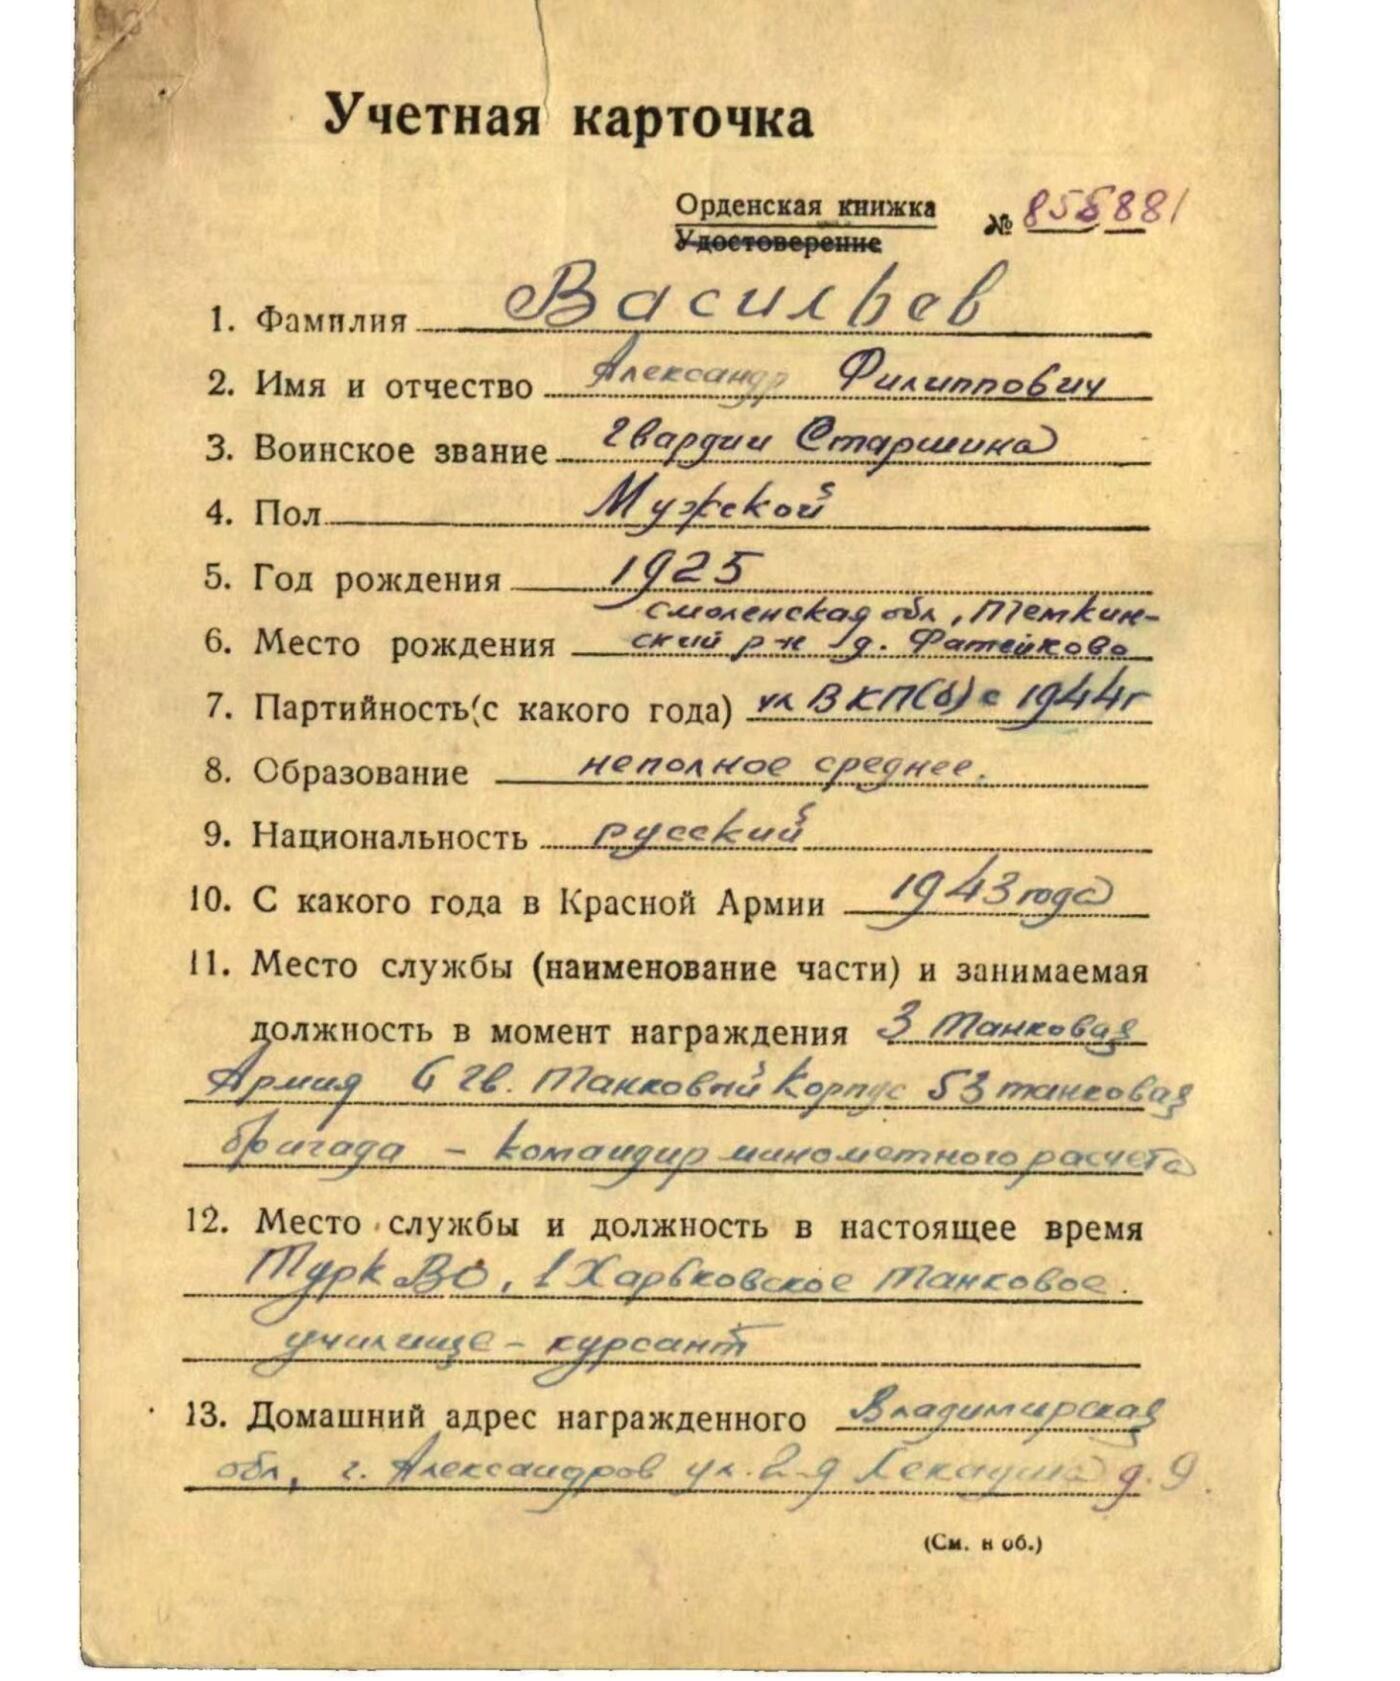 Учетная карточка
Орденская книжка
Удостоверение
№ 856881
1. Фамилия Васильев
2. Имя и отчество Александр Филиппович
3. Воинское звание гвардии Старшина
4. Пол Мужской
5. Год рождения 1925
смоленская обл, Темкин-
6. Место рождения ский р-н д. Фатейково
7. Партийность (с какого года) чл ВКП(б) с 1944г
8. Образование неполное среднее.
9. Национальность русский
10. С какого года в Красной Армии 1943 года
11. Место службы (наименование части) и занимаемая
должность в момент награждения 3 танковая
Армия 6 гв. танковый корпус 53 танковая
бригада – командир минометного расчета
12. Место службы и должность в настоящее время
ТуркВО, 1 Харьковское танковое
училище – курсант
13. Домашний адрес награжденного Владимирская
обл, г. Александров ул. 2-я д. 9.
(См. н об.)